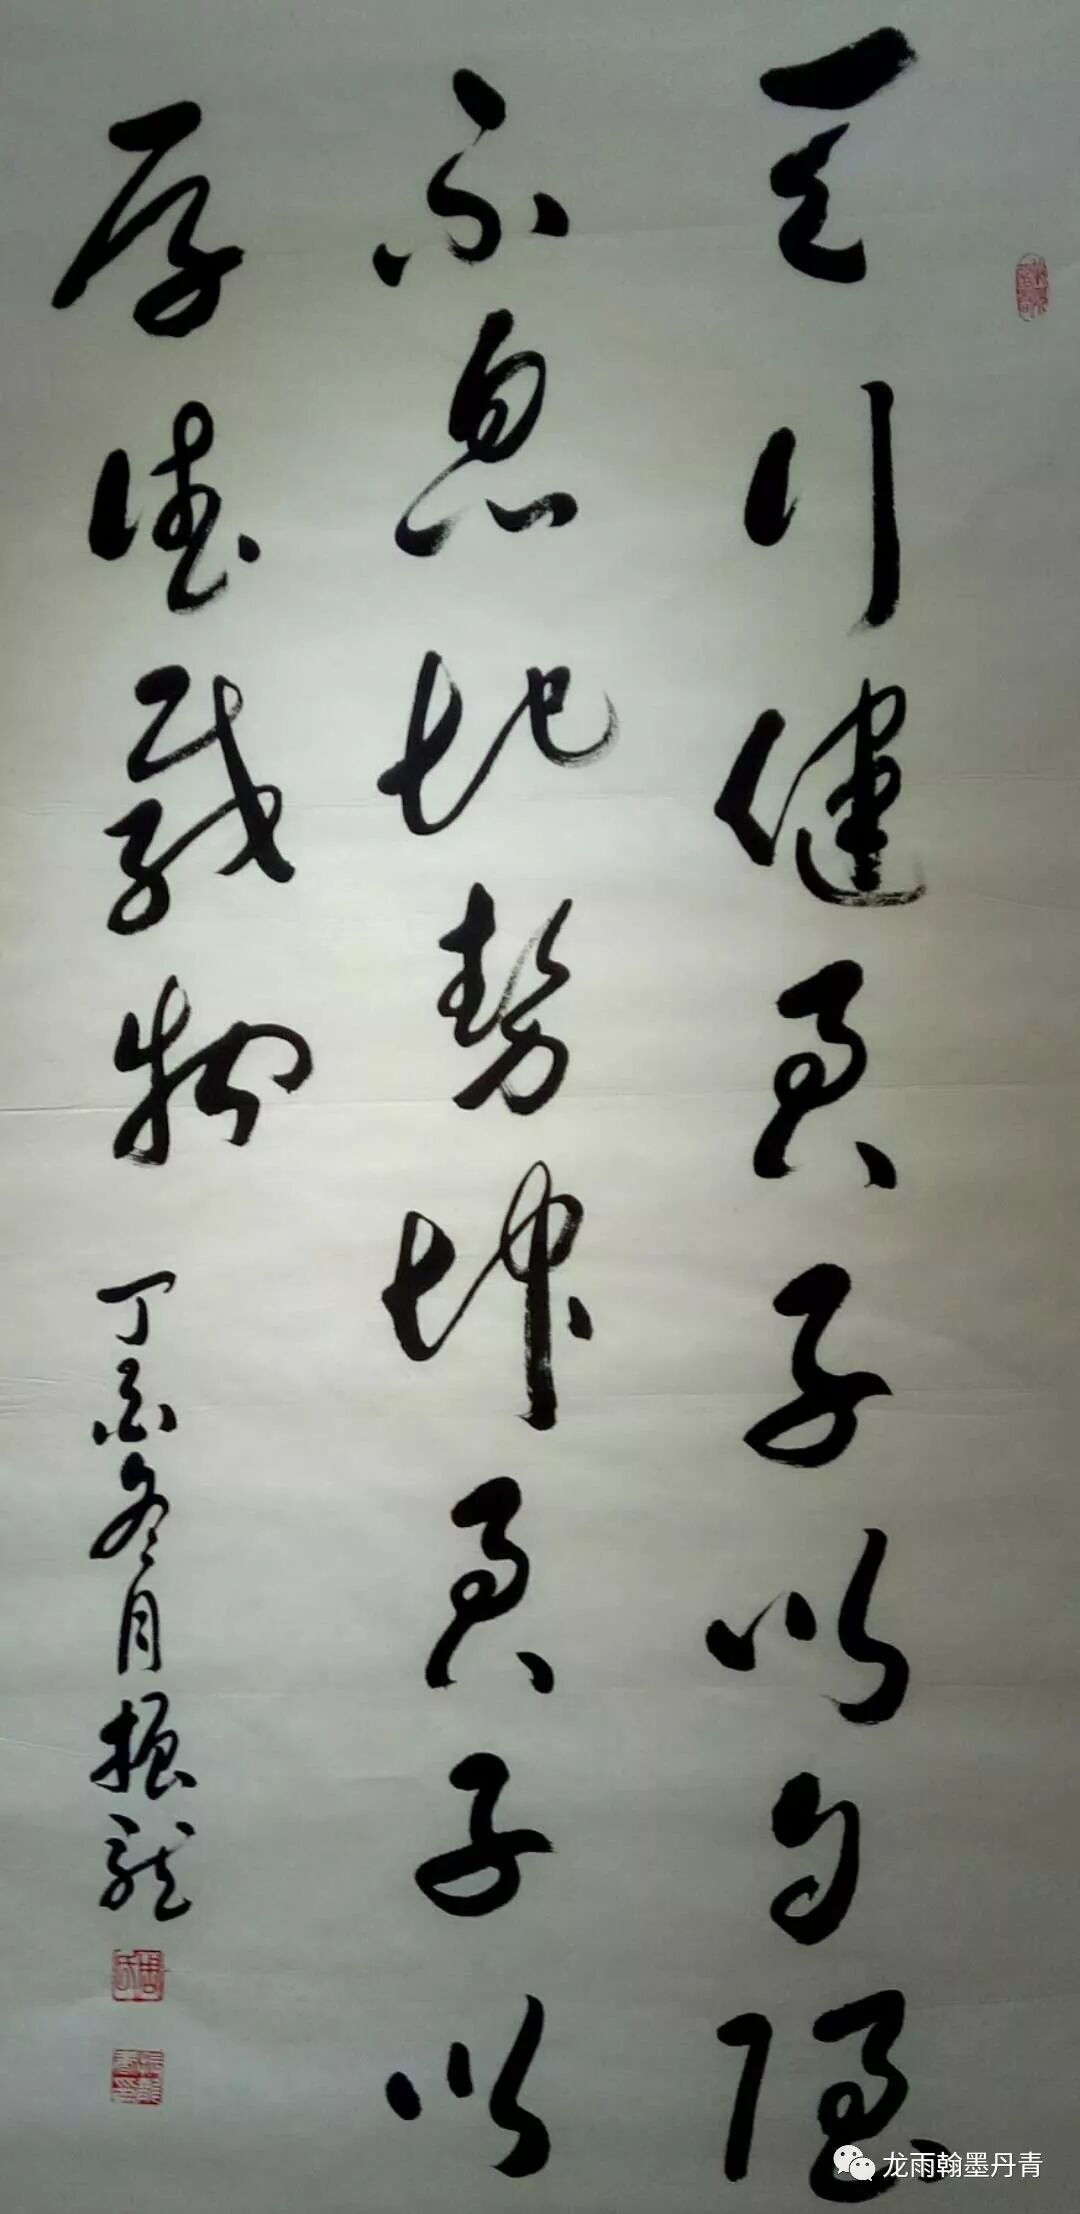 天行健君子以自强
不息地势坤君子以
厚德载物
丁酉冬月振龙
周氏
龙雨翰墨丹青